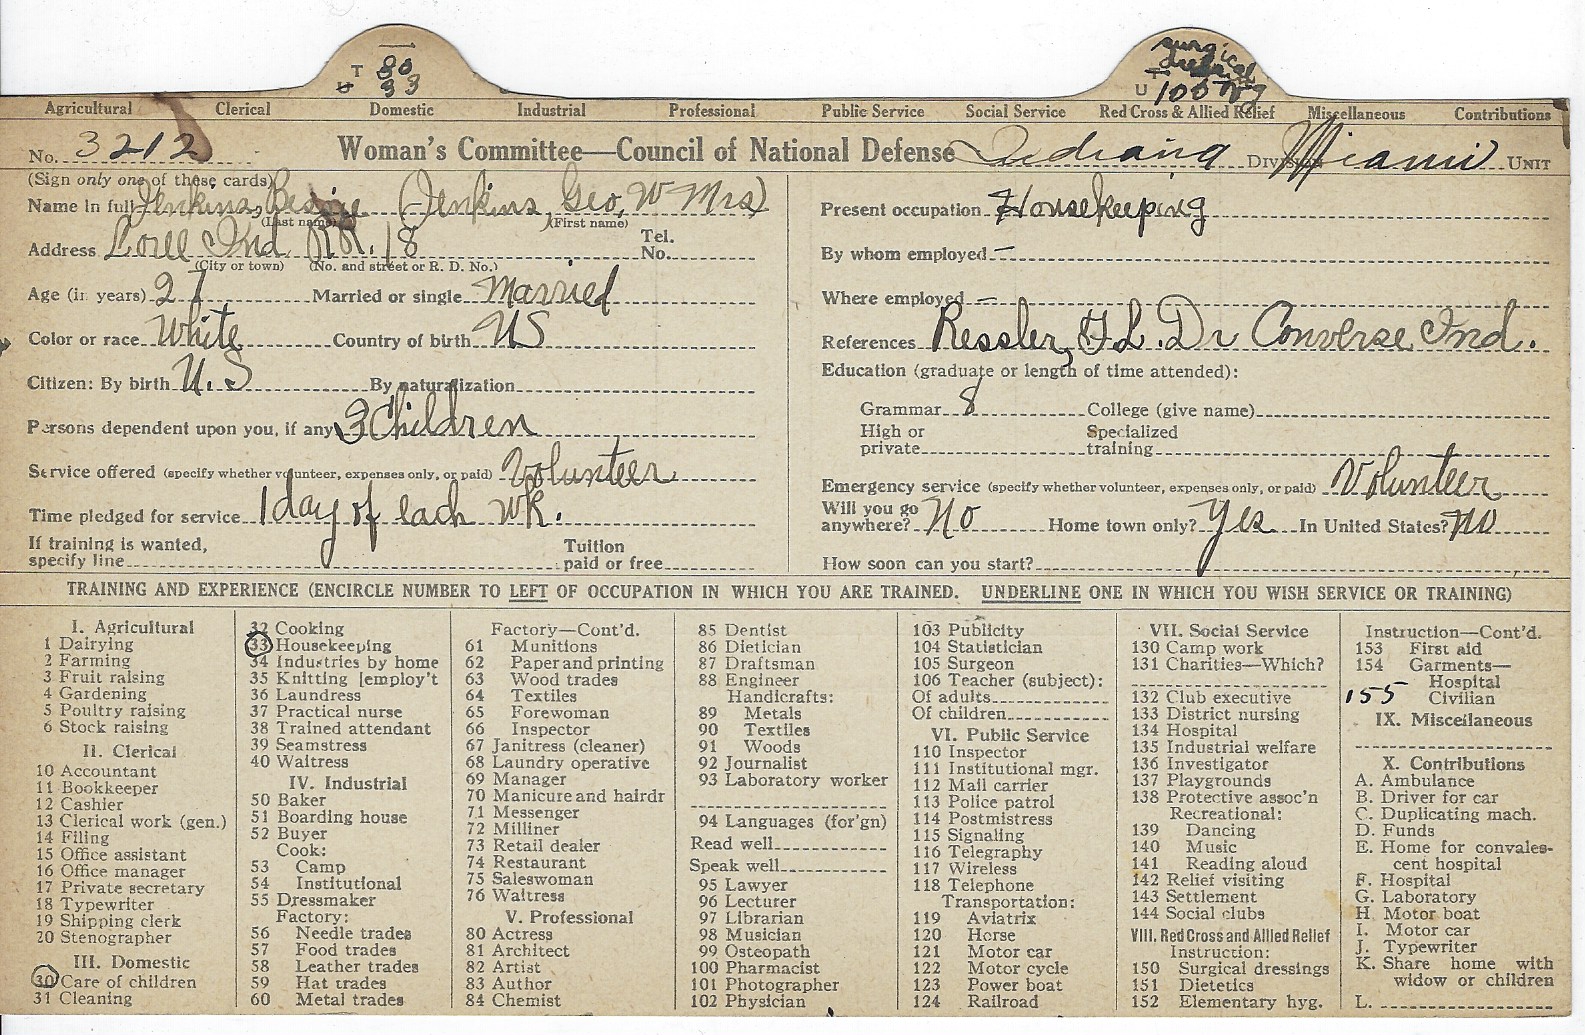 T 30
U 33
surgical
T
U 100
Agricultural Clerical Domestic Industrial Professional Public Service Social Service Red Cross & Allied Relief Miscellaneous Contributions
No. 3212 Woman's Committee—Council of National Defense Indiana Division Miami Unit
(Sign only one of these cards)
Name in full Jenkins, Bessie (Jenkins, Geo, W Mrs)
(Last name) (First name)
Address Loree Ind RR. 18 Tel. No.
(City or town) (No. and street or R. D. No.)
Age (in years) 27 Married or single Married
Color or race White Country of birth US
Citizen: By birth U.S By naturalization
Persons dependent upon you, if any 3 Children
Service offered (specify whether volunteer, expenses only, or paid) Volunteer
Time pledged for service 1 day of each wk.
If training is wanted, specify line Tuition paid or free
Present occupation Housekeeping
By whom employed —
Where employed —
References Ressler, F L. Dr Converse, Ind.
Education (graduate or length of time attended):
Grammar 8 College (give name)
High or private Specialized training
Emergency service (specify whether volunteer, expenses only, or paid) Volunteer
Will you go anywhere? No Home town only? Yes In United States? No
How soon can you start?
TRAINING AND EXPERIENCE (ENCIRCLE NUMBER TO LEFT OF OCCUPATION IN WHICH YOU ARE TRAINED. UNDERLINE ONE IN WHICH YOU WISH SERVICE OR TRAINING)
I. Agricultural
1 Dairying
2 Farming
3 Fruit raising
4 Gardening
5 Poultry raising
6 Stock raising
II. Clerical
10 Accountant
11 Bookkeeper
12 Cashier
13 Clerical work (gen.)
14 Filing
15 Office assistant
16 Office manager
17 Private secretary
18 Typewriter
19 Shipping clerk
20 Stenographer
III. Domestic
30 Care of children
31 Cleaning
32 Cooking
33 Housekeeping
34 Industries by home
35 Knitting [employ't
36 Laundress
37 Practical nurse
38 Trained attendant
39 Seamstress
40 Waitress
IV. Industrial
50 Baker
51 Boarding house
52 Buyer
Cook:
53 Camp
54 Institutional
55 Dressmaker
Factory:
56 Needle trades
57 Food trades
58 Leather trades
59 Hat trades
60 Metal trades
Factory—Cont'd.
61 Munitions
62 Paper and printing
63 Wood trades
64 Textiles
65 Forewoman
66 Inspector
67 Janitress (cleaner)
68 Laundry operative
69 Manager
70 Manicure and hairdr
71 Messenger
72 Milliner
73 Retail dealer
74 Restaurant
75 Saleswoman
76 Waitress
V. Professional
80 Actress
81 Architect
82 Artist
83 Author
84 Chemist
85 Dentist
86 Dietician
87 Draftsman
88 Engineer
Handicrafts:
89 Metals
90 Textiles
91 Woods
92 Journalist
93 Laboratory worker
94 Languages (for'gn)
Read well
Speak well
95 Lawyer
96 Lecturer
97 Librarian
98 Musician
99 Osteopath
100 Pharmacist
101 Photographer
102 Physician
103 Publicity
104 Statistician
105 Surgeon
106 Teacher (subject):
Of adults
Of children
VI. Public Service
110 Inspector
111 Institutional mgr.
112 Mail carrier
113 Police patrol
114 Postmistress
115 Signaling
116 Telegraphy
117 Wireless
118 Telephone
Transportation:
119 Aviatrix
120 Horse
121 Motor car
122 Motor cycle
123 Power boat
124 Railroad
VII. Social Service
130 Camp work
131 Charities—Which?
132 Club executive
133 District nursing
134 Hospital
135 Industrial welfare
136 Investigator
137 Playgrounds
138 Protective assoc'n
Recreational:
139 Dancing
140 Music
141 Reading aloud
142 Relief visiting
143 Settlement
144 Social clubs
VIII. Red Cross and Allied Relief
Instruction:
150 Surgical dressings
151 Dietetics
152 Elementary hyg.
Instruction—Cont'd.
153 First aid
154 Garments—
Hospital
155 Civilian
IX. Miscellaneous
X. Contributions
A. Ambulance
B. Driver for car
C. Duplicating mach.
D. Funds
E. Home for convales-
cent hospital
F. Hospital
G. Laboratory
H. Motor boat
I. Motor car
J. Typewriter
K. Share home with
widow or children
L.